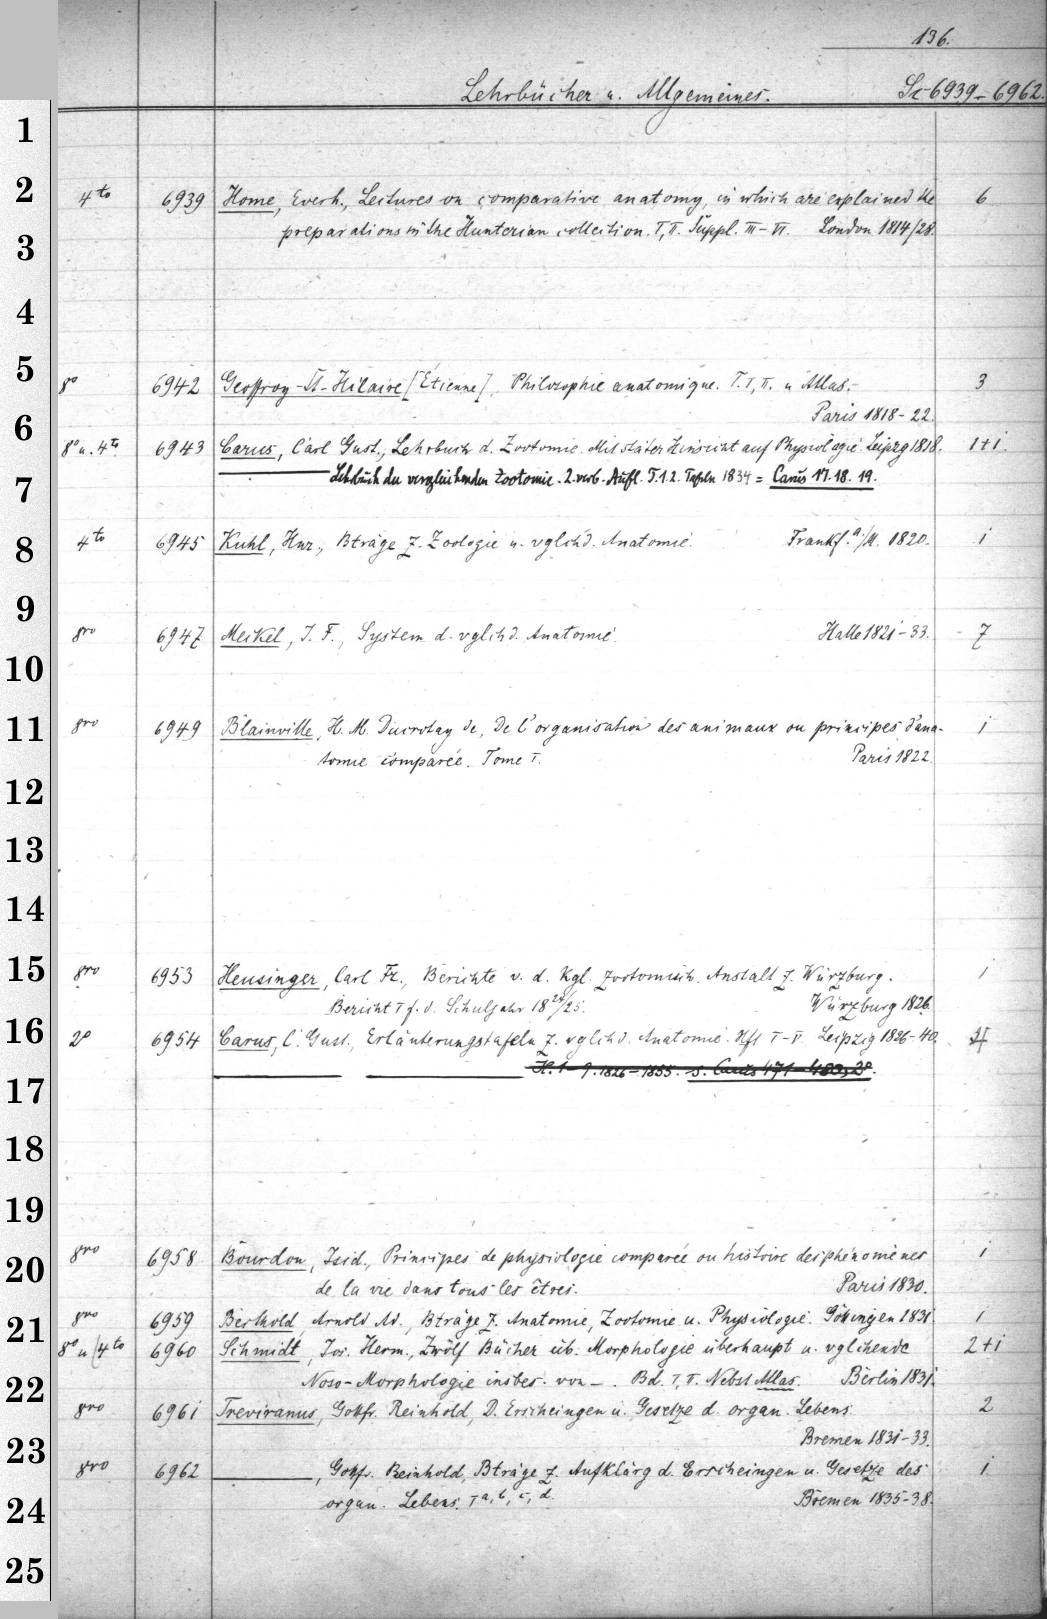 136.
Lehrbücher u. Allgemeines. Sc 6939-6962.
1
2 4to 6939 Home, Everh., Lectures on comparative anatomy, in which are explained the 6
3 preparations in the Hunterian collection. T, II. Suppl. III-VI. London 1814/28.
4
5 8o 6942 Geoffroy-St-Hilaire [Étienne], Philosophie anatomique. T. I, II. u Atlas.- 3
6 Paris 1818-22.
8o u. 4to 6943 Carus, Carl Gust., Lehrbuch d. Zootomie. Mit stäter Hinsicht auf Physiologie. Leipzig 1818. 1+1
7 Lehrbuch der vergleichenden Zootomie. 2. verb. Aufl. T. 1.2. Tafeln 1834 = Carus 17. 18. 19.
8 4to 6945 Kuhl, Hnr., Bträge z. Zoologie u. vglchd. Anatomie. Frankf. a/M. 1820. 1
9 8vo 6947 Meckel, J. F., System d. vglchd. Anatomie. Halle 1821-33. 7
10
11 8vo 6949 Blainville, H. M. Ducrotay de, De l'organisation des animaux ou principes d'ana- 1
tomie comparée. Tome I. Paris 1822.
12
13
14
15 8vo 6953 Heusinger, Carl Fr., Berichte v. d. Kgl. zootomisch. Anstalt z. Würzburg. 1
Bericht I f. d. Schuljahr 1824/25. Würzburg 1826.
16 2o 6954 Carus, C. Gust., Erläuterungstafeln z. vglchd. Anatomie. Hft I-V Leipzig 1826-40.
17 H. 1-9. 1826-1855. s. Carus 471-483, 2o.
18
19
20 8vo 6958 Bourdon, Isid., Principes de physiologie comparée ou histoire des phénomènes 1
de la vie dans tous les êtres. Paris 1830.
21 8vo 6959 Berthold, Arnold Ad., Bträge z. Anatomie, Zootomie u. Physiologie. Göttingen 1831 1
8o u 4to 6960 Schmidt, Jos. Herm., Zwölf Bücher üb. Morphologie überhaupt u. vglchende 2+1
22 Noso-Morphologie insbes. von -. Bd. I, II. Nebst Atlas. Berlin 1831.
8vo 6961 Treviranus, Gottfr. Reinhold, D. Erscheingen u. Gesetze d. organ. Lebens 2
23 Bremen 1831-33.
8vo 6962 , Gottfr. Reinhold, Bträge z. Aufklärg d. Erscheingen u. Gesetze des 1
24 organ. Lebens. I a, b, c, d. Bremen 1835-38.
25